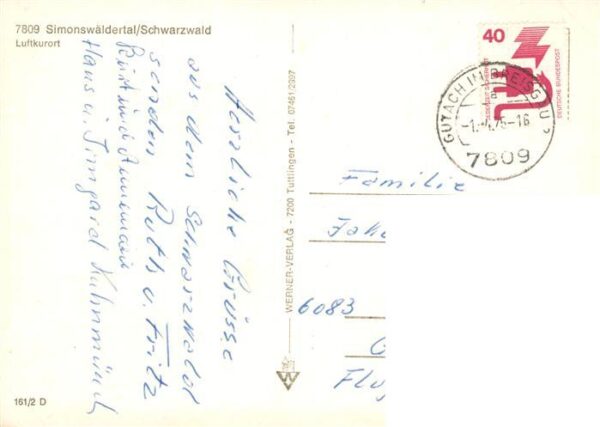 7809 Simonswäldertal/Schwarzwald
Luftkurort
Herzliche Grüsse
aus dem Schwarzwald
senden Ruth u. Fritz
Hans u. Irmgard
161/2 D
WERNER-VERLAG - 7200 Tuttlingen - Tel. 07461/2397
W
40
JEDERZEIT SICHERHEIT
DEUTSCHE BUNDESPOST
GUTACH IM BREISGAU
a
-1.-4.75-16
7809
Familie
6083